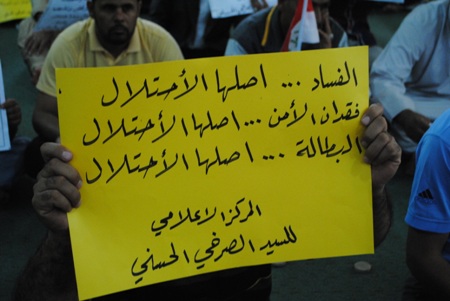 الفساد ... اصلها الأحتلال
فقدان الأمن ... اصلها الأحتلال
البطالة ... اصلها الأحتلال
المركز الاعلامي
للسيد الصرخي الحسني